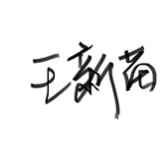 王新苗